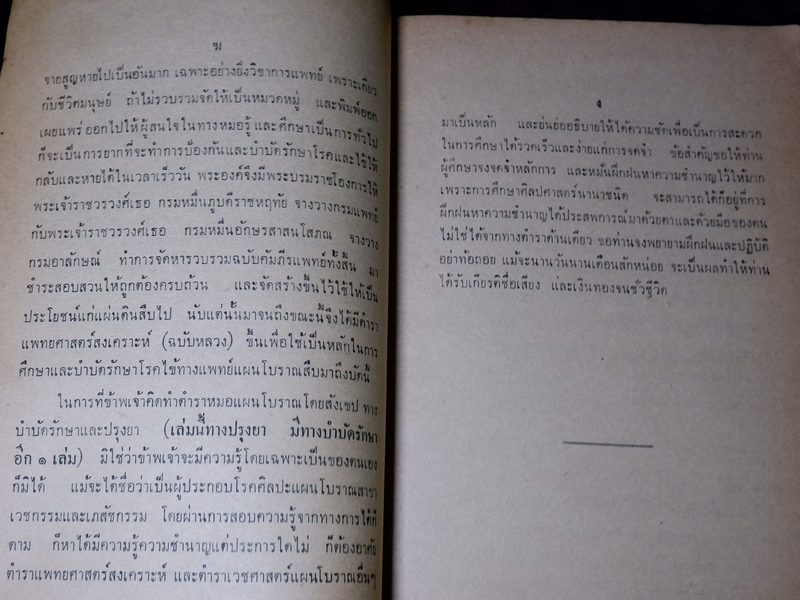 ฆ
จายสูญหายไปเป็นอันมาก เฉพาะอย่างยิ่งวิชาการแพทย์ เพราะเกี่ยว
กับชีวิตมนุษย์ ถ้าไม่รวบรวมจัดให้เป็นหมวดหมู่ และพิมพ์ออก
เผยแพร่ออกไปให้ผู้สนใจในทางหมอรู้ และศึกษาเป็นการทั่วไป
ก็จะเป็นการยากที่จะทำการป้องกันและบำบัดรักษาโรคและไข้ให้
กลับและหายได้ในเวลาเร็ววัน พระองค์จึงมีพระบรมราชโองการให้
พระเจ้าราชวรวงศ์เธอ กรมหมื่นภูบดีราชหฤทัย จางวางกรมแพทย์
กับพระเจ้าราชวรวงศ์เธอ กรมหมื่นอักษรสาสนโสภณ จางวาง
กรมอาลักษณ์ ทำการจัดหารวบรวมฉบับคัมภีรแพทย์ทั้งสิ้น มา
ชำระสอบสวนให้ถูกต้องครบถ้วน และจัดสร้างขึ้นไว้ใช้ให้เป็น
ประโยชน์แก่แผ่นดินสืบไป นับแต่นั้นมาจนถึงขณะนี้จึงได้มีตำรา
แพทยศาสตร์สงเคราะห์ (ฉบับหลวง) ขึ้นเพื่อใช้เป็นหลักในการ
ศึกษาและบำบัดรักษาโรคไข้ทางแพทย์แผนโบราณสืบมาถึงบัดนี้
ในการที่ข้าพเจ้าคิดทำตำราหมอแผนโบราณโดยสังเขป ทาง
บำบัดรักษาและปรุงยา (เล่มนี้ทางปรุงยา มีทางบำบัดรักษา
อีก ๑ เล่ม) มิใช่ว่าข้าพเจ้าจะมีความรู้โดยเฉพาะเป็นของตนเอง
ก็มิได้ แม้จะได้ชื่อว่าเป็นผู้ประกอบโรคศิลปะแผนโบราณสาขา
เวชกรรมและเภสัชกรรม โดยผ่านการสอบความรู้จากทางการได้ก็
ตาม ก็หาได้มีความรู้ความชำนาญแต่ประการใดไม่ ก็ต้องอาศัย
ตำราแพทยศาสตร์สงเคราะห์ และตำราเวชศาสตร์แผนโบราณอื่นๆ
ง
มาเป็นหลัก และย่นย่ออธิบายให้ได้ความชัดเพื่อเป็นการสะดวก
ในการศึกษาได้รวดเร็วและง่ายแก่การจดจำ ข้อสำคัญขอให้ท่าน
ผู้ศึกษาจงจดจำหลักการ และหมั่นฝึกฝนหาความชำนาญไว้ให้มาก
เพราะการศึกษาศิลปศาสตร์นานาชนิด จะสามารถได้ก็อยู่ที่การ
ฝึกฝนหาความชำนาญได้ประสพการณ์มาด้วยตาและด้วยมือของตน
ไม่ใช่ได้จากทางตำราด้านเดียว ขอท่านจงพยายามฝึกฝนและปฏิบัติ
อย่าท้อถอย แม้จะนานวันนานเดือนสักหน่อย จะเป็นผลทำให้ท่าน
ได้รับเกียรติชื่อเสียง และเงินทองจนชั่วชีวิต